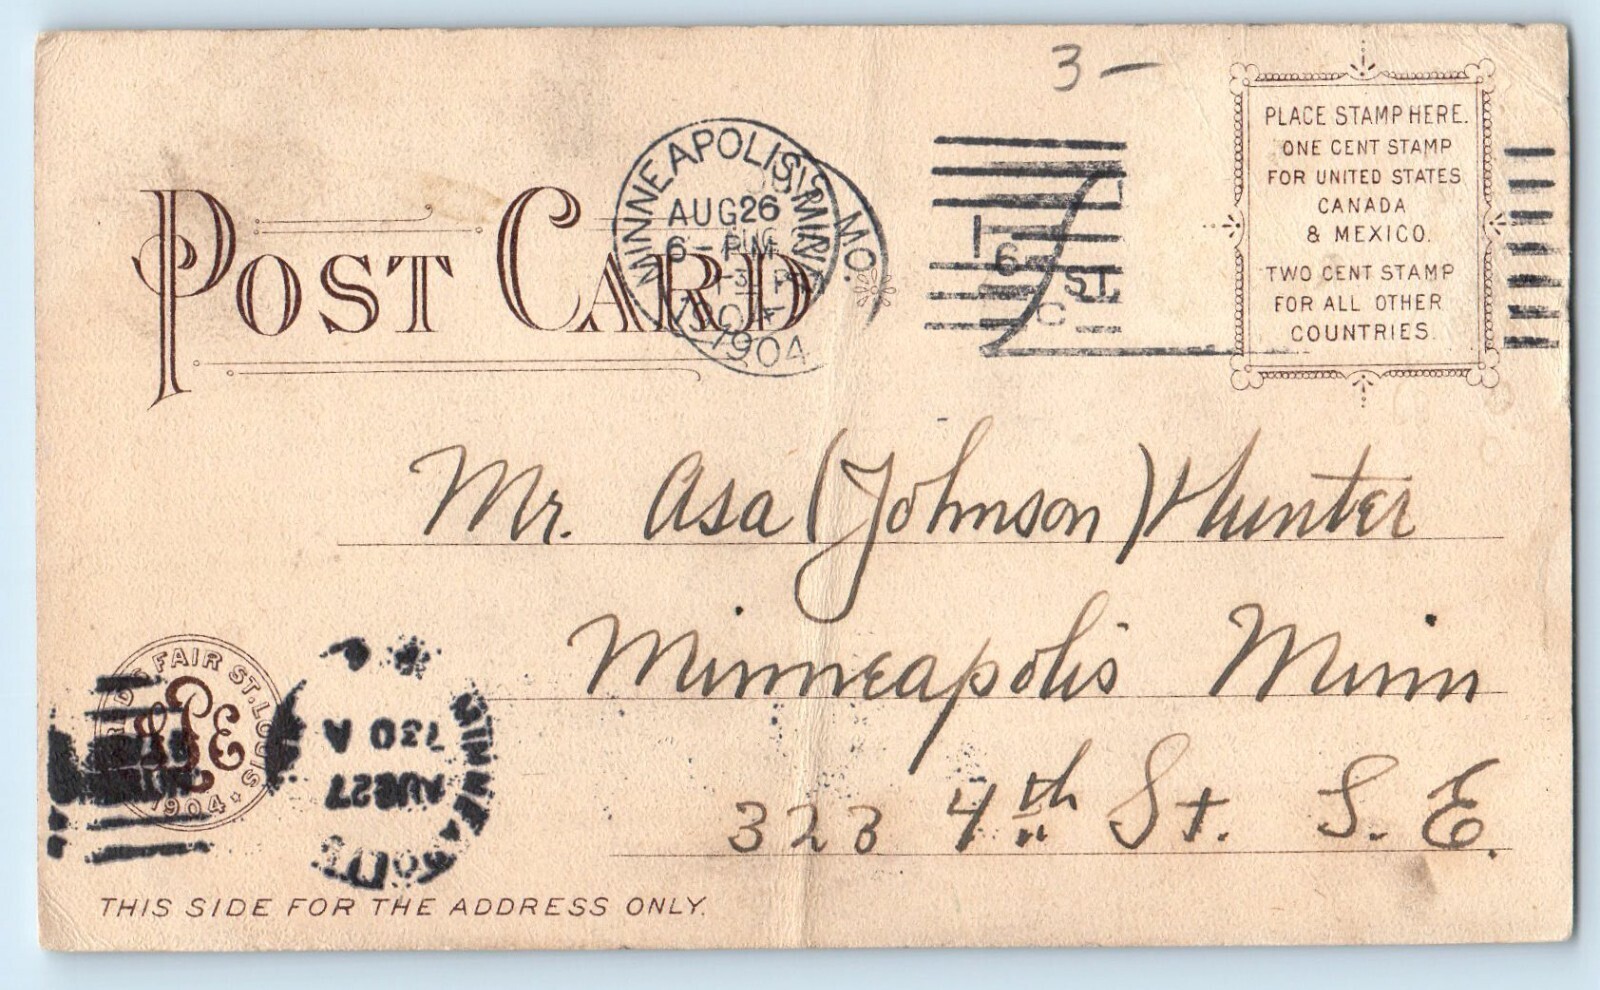 3 —
PLACE STAMP HERE.
ONE CENT STAMP
FOR UNITED STATES
CANADA
& MEXICO.
TWO CENT STAMP
FOR ALL OTHER
COUNTRIES.
POST CARD
MINNEAPOLIS, MINN.
AUG 26
6 - PM
1904
MO.
Mr. Asa (Johnson) Hunter
Minneapolis Minn
323 4th St. S. E.
WORLD'S FAIR ST. LOUIS
1904
730 A
AUG 27
THIS SIDE FOR THE ADDRESS ONLY.